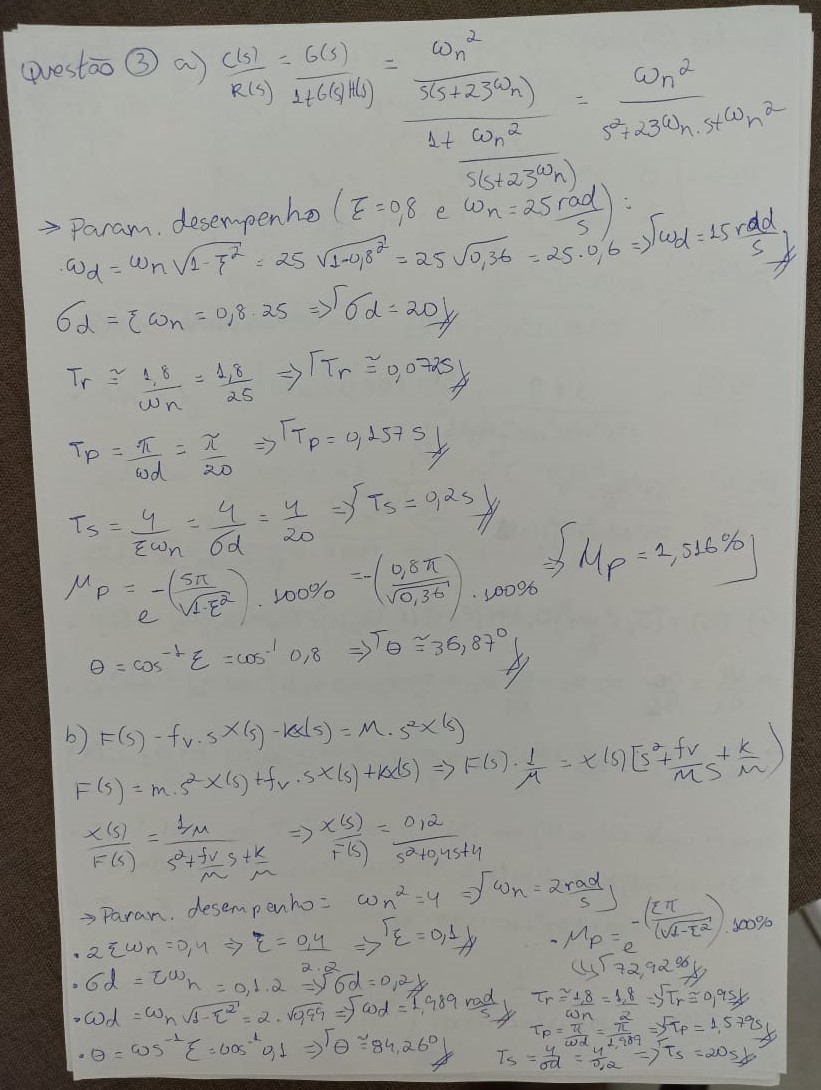 Questão ③ a) C(s)/R(s) = G(s)/(1+G(s)H(s)) = (ωn²/(s(s+2ξωn)))/(1+ωn²/(s(s+2ξωn))) = ωn²/(s²+2ξωn.s+ωn²)
→ Param. desempenho (ξ=0,8 e ωn=25 rad/s):
.ωd = ωn√(1-ξ²) = 25 √(1-0,8²) = 25√0,36 = 25.0,6 => ωd = 15 rad/s
σd = ξωn = 0,8.25 => σd = 20
Tr ≅ 1,8/ωn = 1,8/25 => Tr ≅ 0,072s
Tp = π/ωd = π/20 => Tp = 0,157s
Ts = 4/ξωn = 4/σd = 4/20 => Ts = 0,2s
Mp = e^-(5π/√(1-ξ²)) . 100% = -(0,8π/√0,36) . 100% => Mp = 1,516%
θ = cos⁻¹ ξ = cos⁻¹ 0,8 => θ ≅ 36,87°
b) F(s) - fv.sX(s) - kx(s) = M.s²X(s)
F(s) = m.s²X(s)+fv.sX(s)+kx(s) => F(s).1/M = X(s)[s²+fv/M s+k/m)
X(s)/F(s) = (1/M)/(s²+fv/m s+k/m) => X(s)/F(s) = 0,2/(s²+0,4s+4)
→ Param. desempenho = ωn²=4 => ωn = 2 rad/s
.2ξωn=0,4 => ξ = 0,4/2.2 => ξ = 0,1
.σd = ξωn = 0,1.2 => σd = 0,2
.ωd = ωn√(1-ξ²) = 2.√0,99 => ωd = 1,989 rad/s
.θ = cos⁻¹ ξ = cos⁻¹ 0,1 => θ ≅ 84,26°
.Mp = e^-(ξπ/(√(1-ξ²)) . 100%
↳ 72,92%
Tr ≅ 1,8/ωn = 1,8/2 => Tr ≅ 0,9s
Tp = π/ωd = π/1,989 => Tp = 1,579s
Ts = 4/σd = 4/0,2 => Ts = 20s